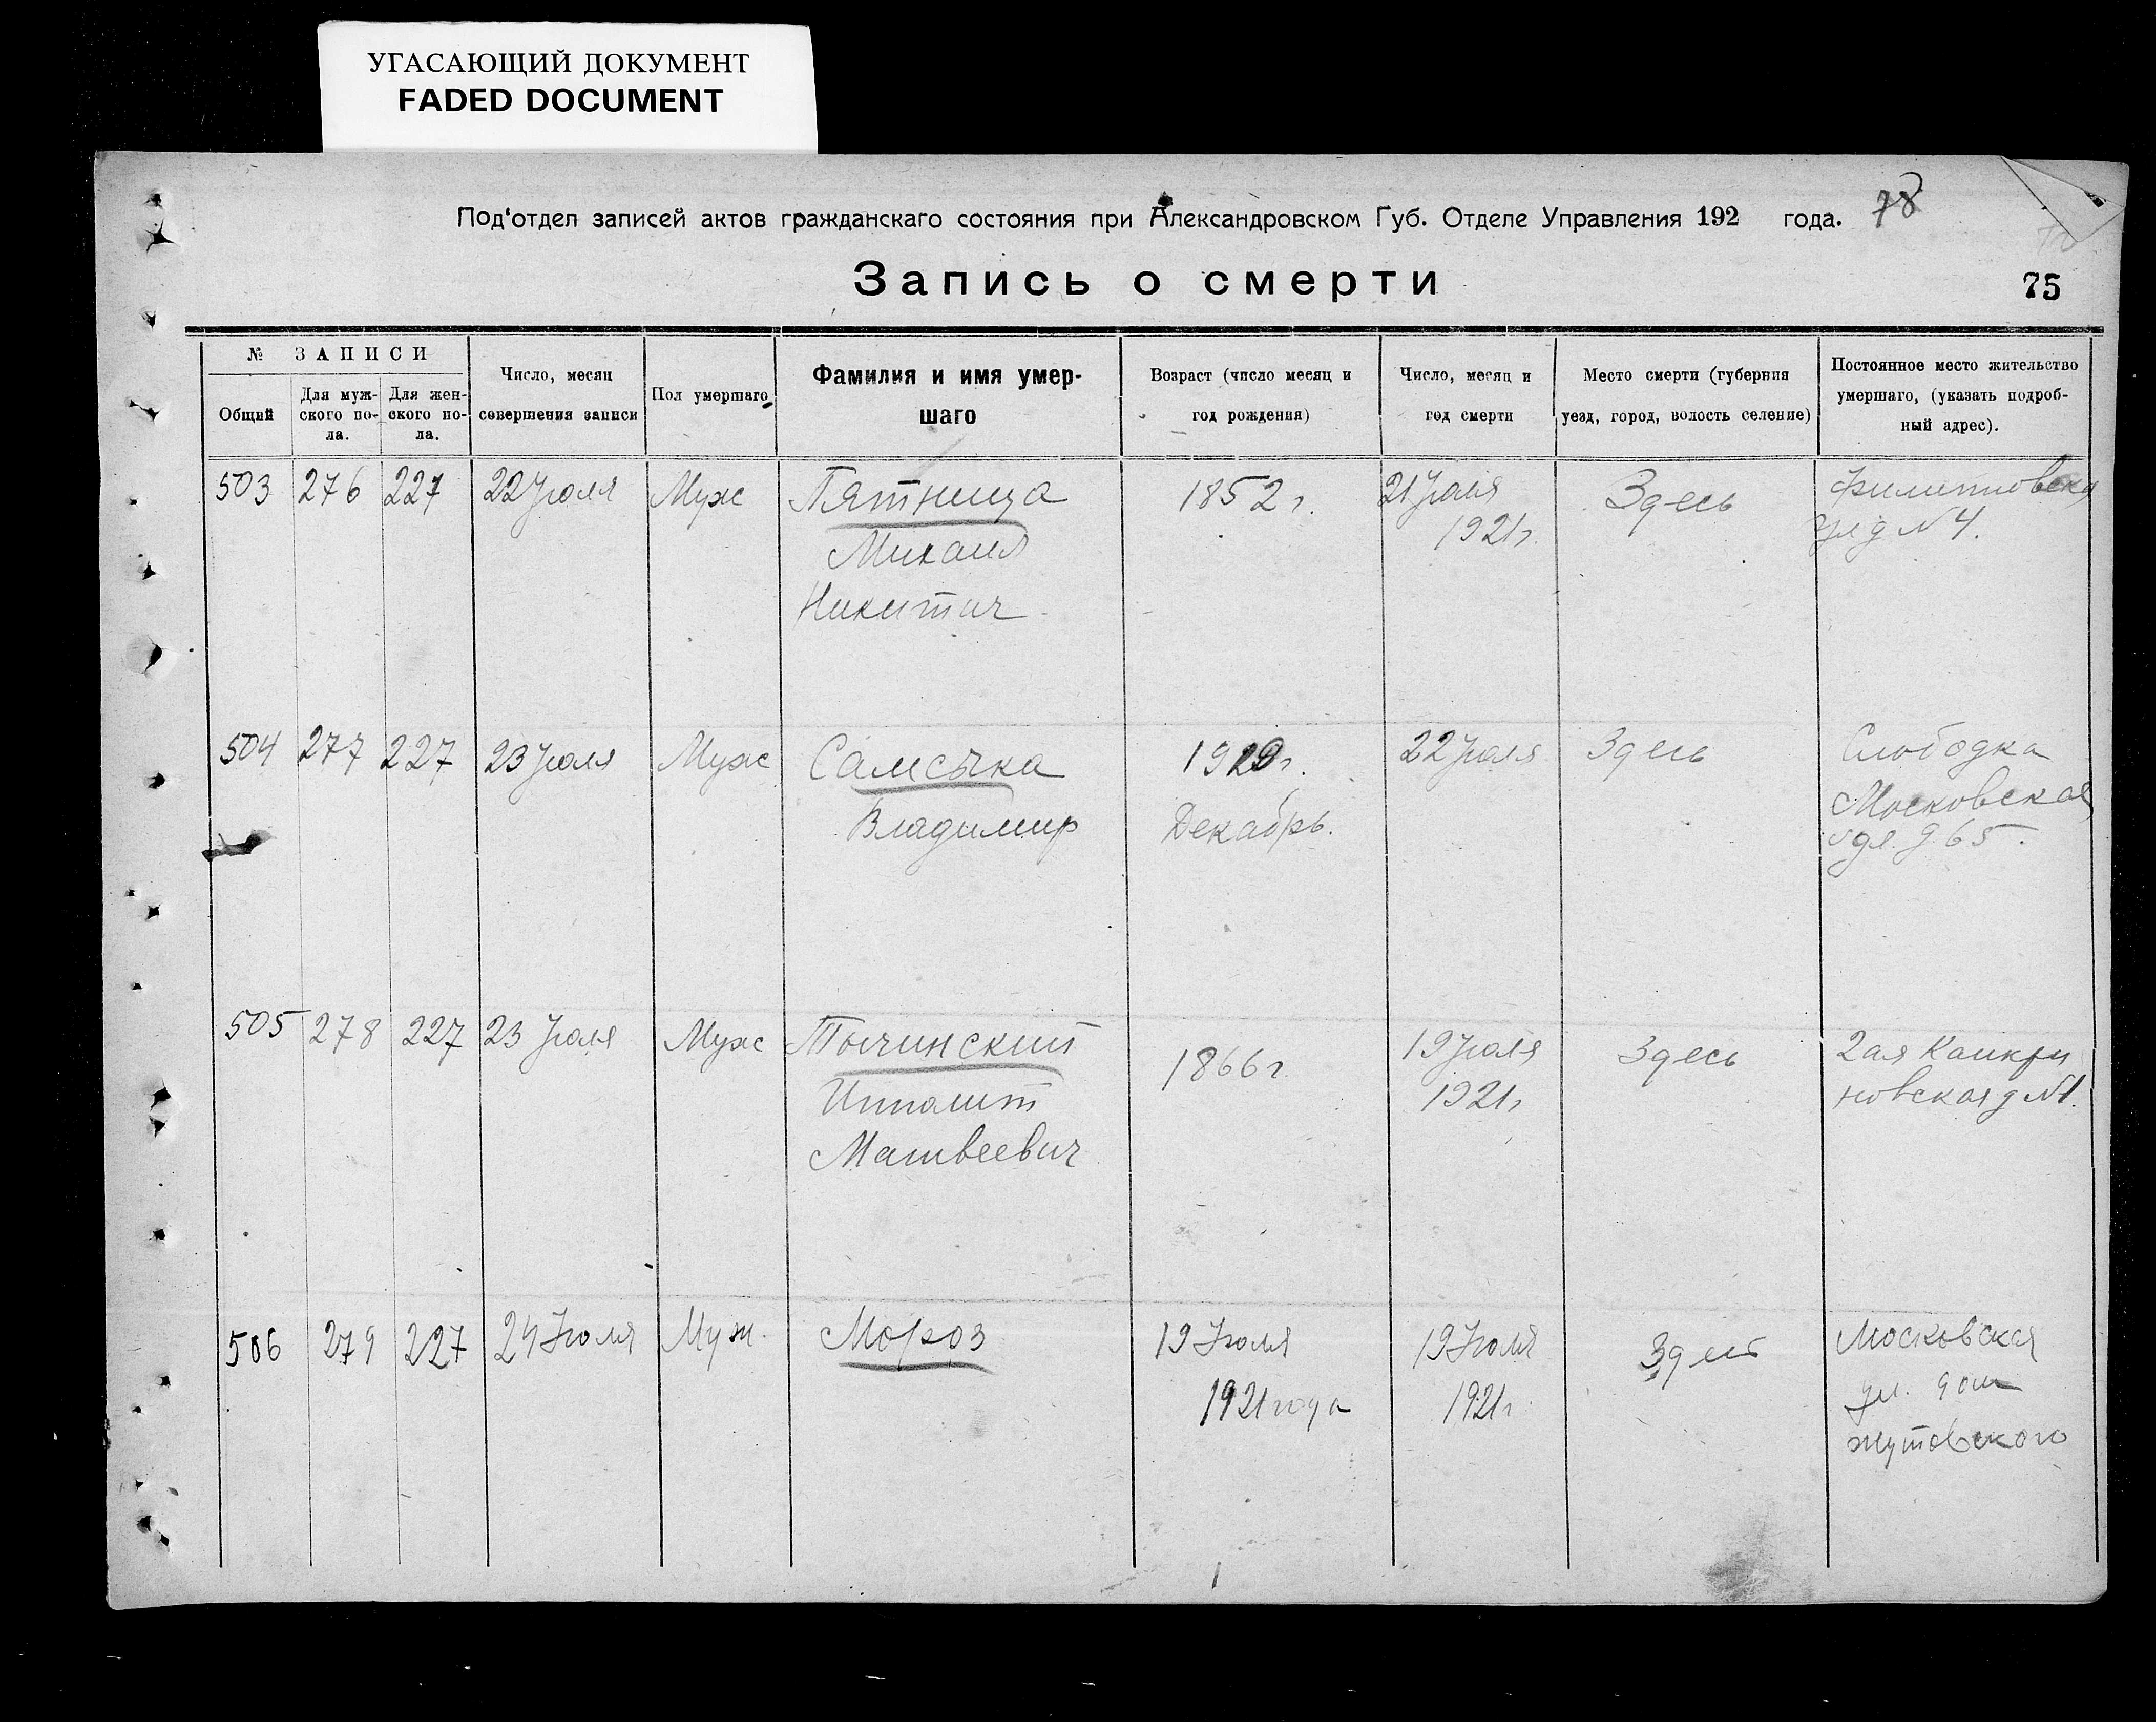 УГАСАЮЩИЙ ДОКУМЕНТ
FADED DOCUMENT
Под'отдел записей актов гражданскаго состояния при Александровском Губ. Отделе Управления 192 года. 78
Запись о смерти
75
№ ЗАПИСИ
Общий
Для муж-
ского по-
ла.
Для жен-
ского по-
ла.
Число, месяц
совершения записи
Пол умершаго
Фамилия и имя умер-
шаго
Возраст (число месяц и
год рождения)
Число, месяц и
год смерти
Место смерти (губерния
уезд, город, волость селение)
Постоянное место жительство
умершаго, (указать подроб-
ный адрес).
503 276 227 22 Июля Муж
Пятница
Михаил
Никитич
1852 г.
21 Июля
1921 г.
Здесь
Филипповска
ул д N 4.
504 277 227 23 Июля Муж
Самсыка
Владимир
1920 г.
Декабрь.
22 Июля
Здесь
Слободка
Московская
ул. д. 65.
505 278 227 23 Июля Муж
Тычинский
Ипполит
Матвеевич
1866 г
19 Июля
1921 г
Здесь
2ая Канкри
новская д N1.
506 279 227 24 Июля Муж.
Мороз
19 Июля
1921 года
19 Июля
1921 г
Здесь
Московская
ул. дом